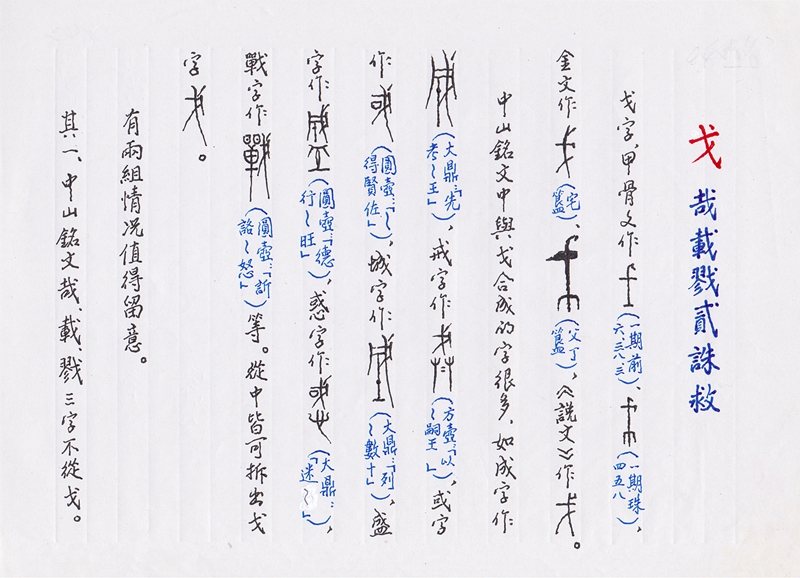 戈 哉載戮貳誅救
戈字，甲骨文作（一期前六、三八、三）、（一期珠四五八），
金文作（宅簋）、（父丁簋），《說文》作。
中山銘文中與戈合成的字很多，如成字作
（大鼎：「先考〜王」，戒字作（方壺：「以〜嗣王」），或字
作（圓壺：「〜得賢佐」，城字作（大鼎：「列〜數十」），盛
字作（圓壺：「德行〜旺」），惑字作（大鼎：「迷〜」），
戰字作（圓壺：「訢詻〜怒」）等。從中皆可拆出戈
字。
有兩組情况值得留意。
其一、中山銘文哉、載、戮三字不從戈。